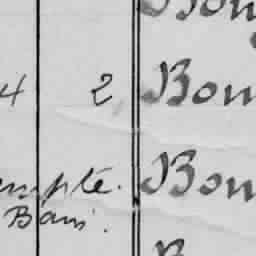 Bon
4 2 Bon
empte. Bon
Bans.
B